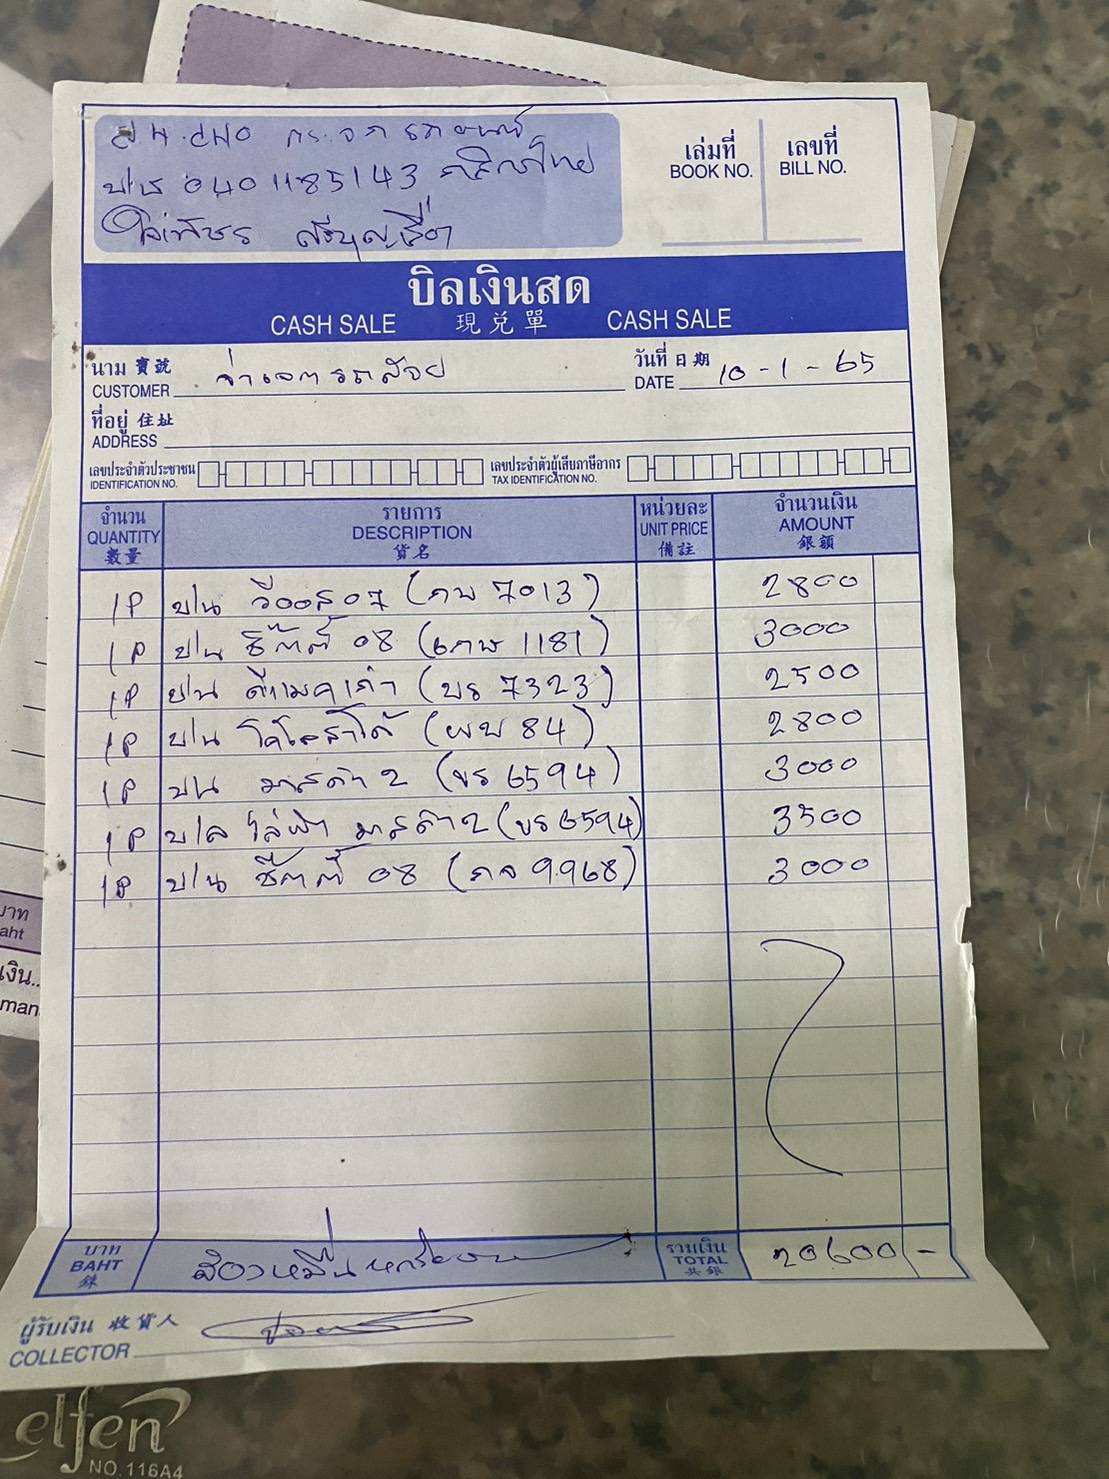 เล่มที่ เลขที่
BOOK NO. BILL NO.
กระจกรถยนต์
0401185143 กสิกรไทย
บิลเงินสด
CASH SALE 現兌單 CASH SALE
นาม 寶號 วันที่ 日期 10-1-65
CUSTOMER จ่าเอกรถสวย DATE
ที่อยู่ 住址
ADDRESS
เลขประจำตัวประชาชน เลขประจำตัวผู้เสียภาษีอากร
IDENTIFICATION NO. TAX IDENTIFICATION NO.
จำนวน รายการ หน่วยละ จำนวนเงิน
QUANTITY DESCRIPTION UNIT PRICE AMOUNT
數量 貨名 備註 銀額
1P บ/น วีออส 07 (กพ 7013) 2800
1P บ/น ซิตี้ 08 (1181) 3000
1P บ/น ดีแมคเก่า (บร 7323) 2500
1P บ/น โคโลราโด้ (ผบ 84) 2800
1P บ/น มาสด้า 2 (ขร 6594) 3000
1P บ/ล ไล่ฝ้า มาสด้า 2 (ขร 6594) 3500
1P บ/น ซิตี้ 08 (กจ 9968) 3000
บาท สองหมื่นหกร้อยบาท รวมเงิน 20600 -
BAHT TOTAL
銖 共銀
ผู้รับเงิน 收貨人
COLLECTOR
บาท
aht
เงิน..
man
elfen
NO.116A4